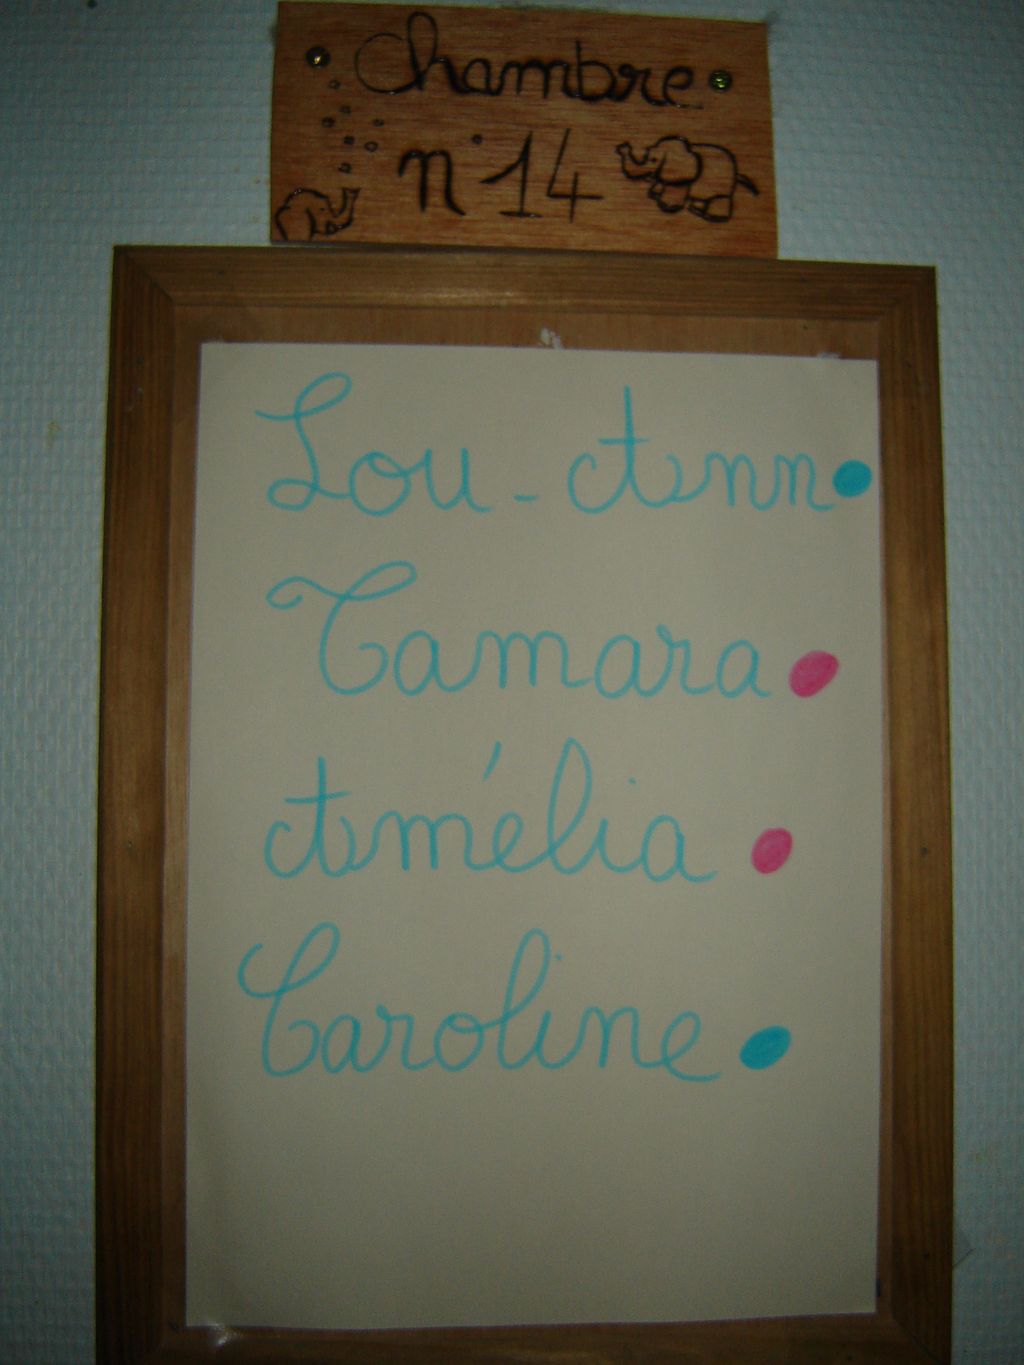 Chambre
n°14
Lou-Ann
Tamara
Amélia
Caroline